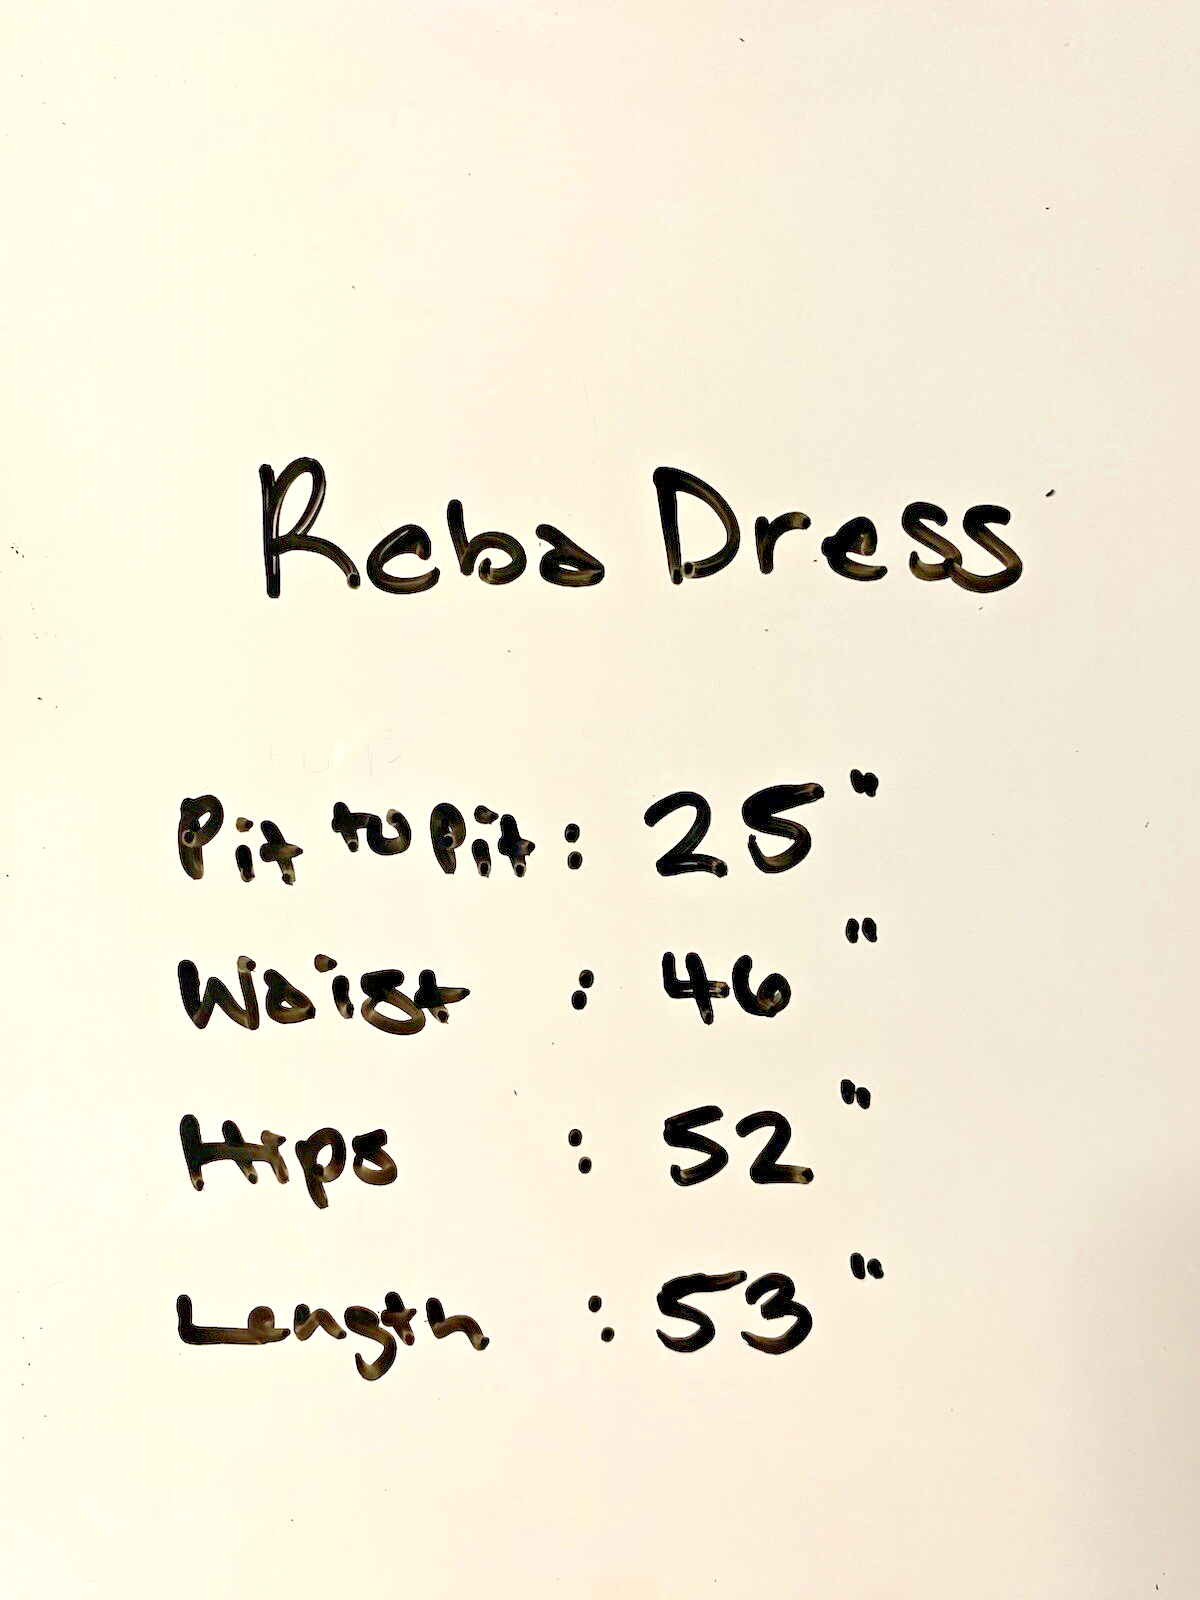 Reba Dress
Pit to Pit : 25"
Waist : 46"
Hips : 52"
Length : 53"